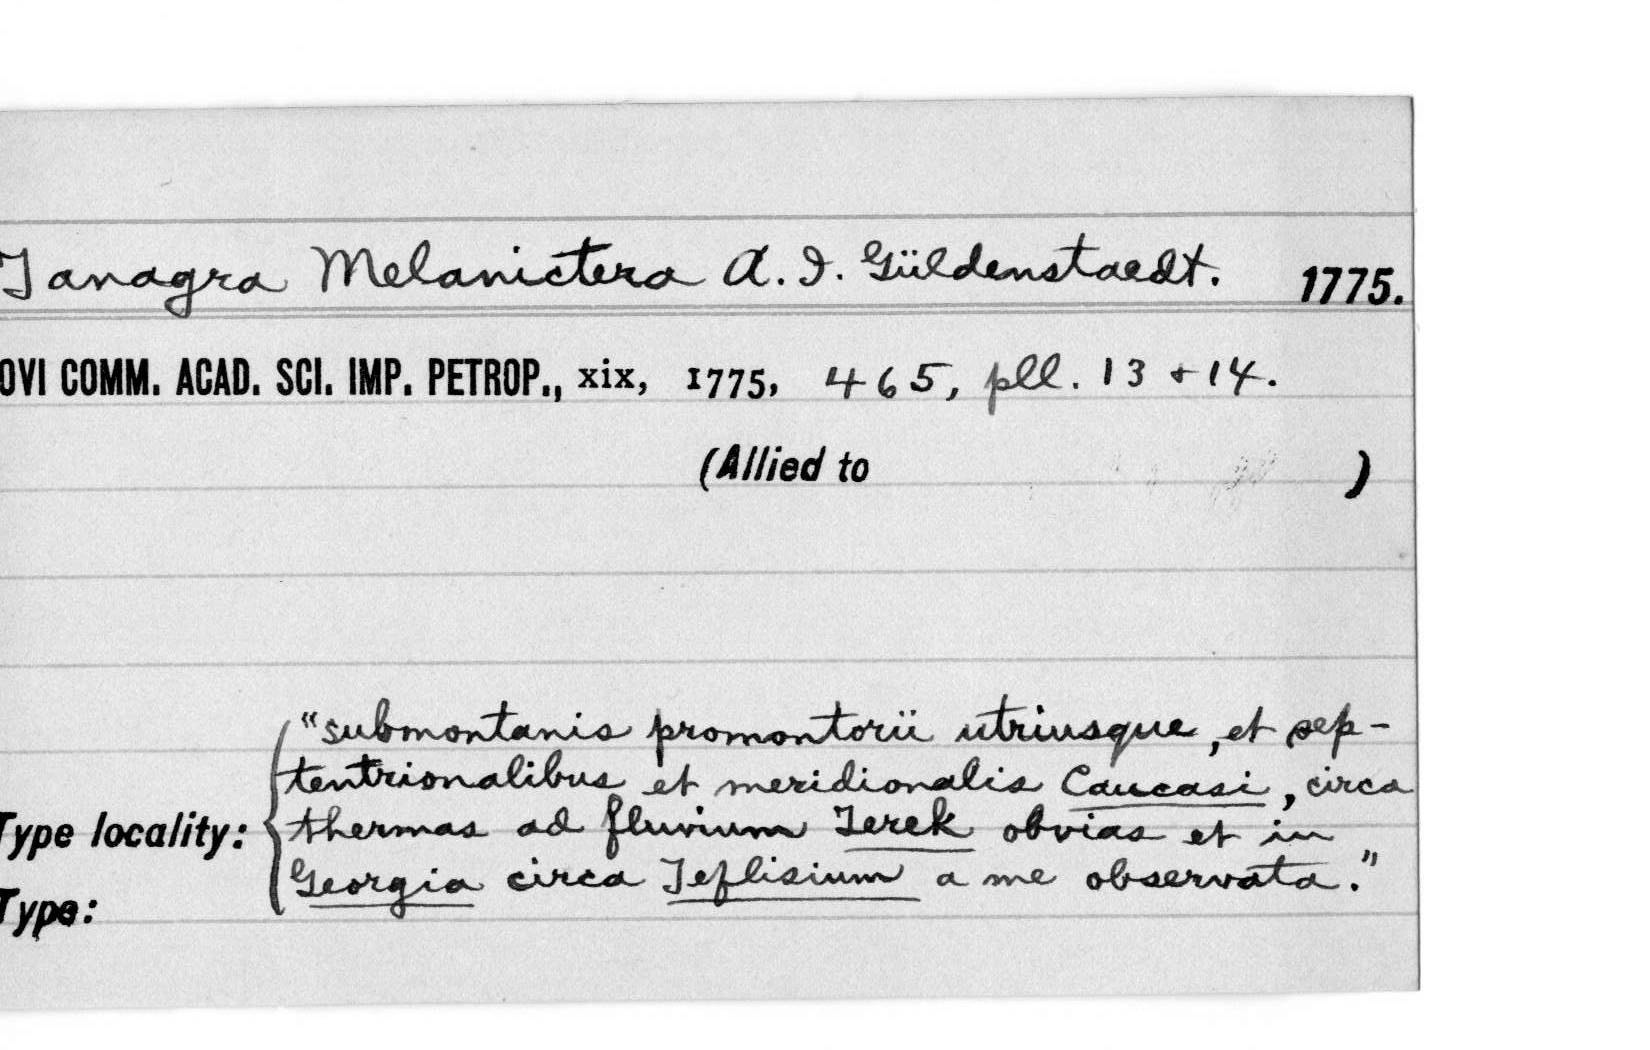 Tanagra Melanictera A. I. Güldenstaedt. 1775.
OVI COMM. ACAD. SCI. IMP. PETROP., xix, 1775, 465, pll. 13 + 14.
(Allied to )
"submontanis promontorii utriusque, et sep-
tentrionalibus et meridionalis Caucasi, circa
thermas ad fluvium Terek obvias et in
Type locality:
Georgia circa Teflisium a me observata."
Type: